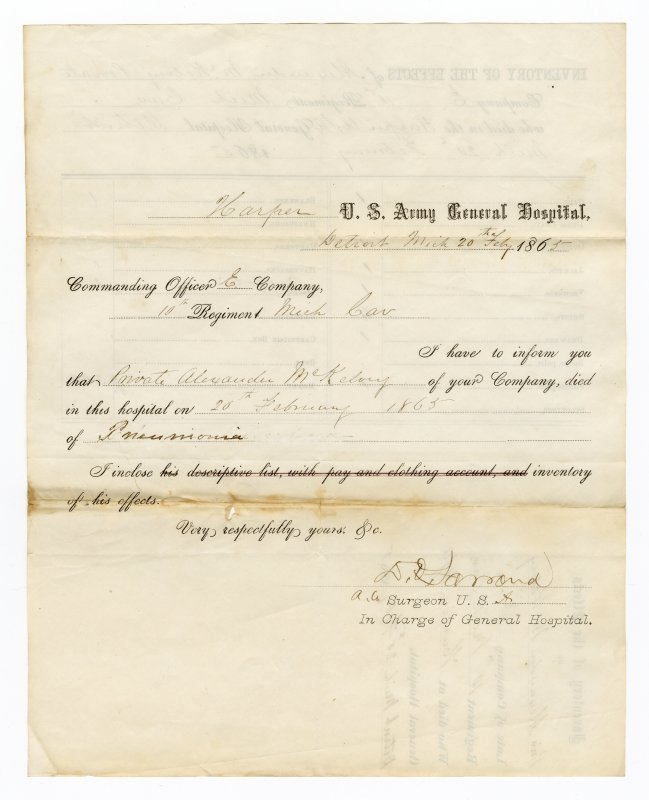 Harper U. S. Army General Hospital,
Detroit Mich 20th Feby 1865
Commanding Officer E Company,
10th Regiment Mich Cav
I have to inform you
that Private Alexander McKelvy of your Company, died
in this hospital on 20th February 1865
of Pneumonia
I inclose his descriptive list, with pay and clothing account, and inventory
of his effects.
Very respectfully yours, &c.
D. O. Farrand
A. A. Surgeon U. S. A
In Charge of General Hospital.